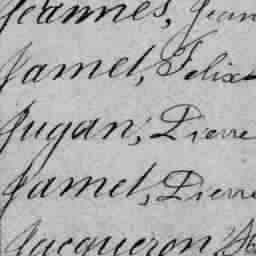 Jeannes, Jean
Jamet, Félix
Jugan, Pierre
Jamet, Pierre
Jacqueron